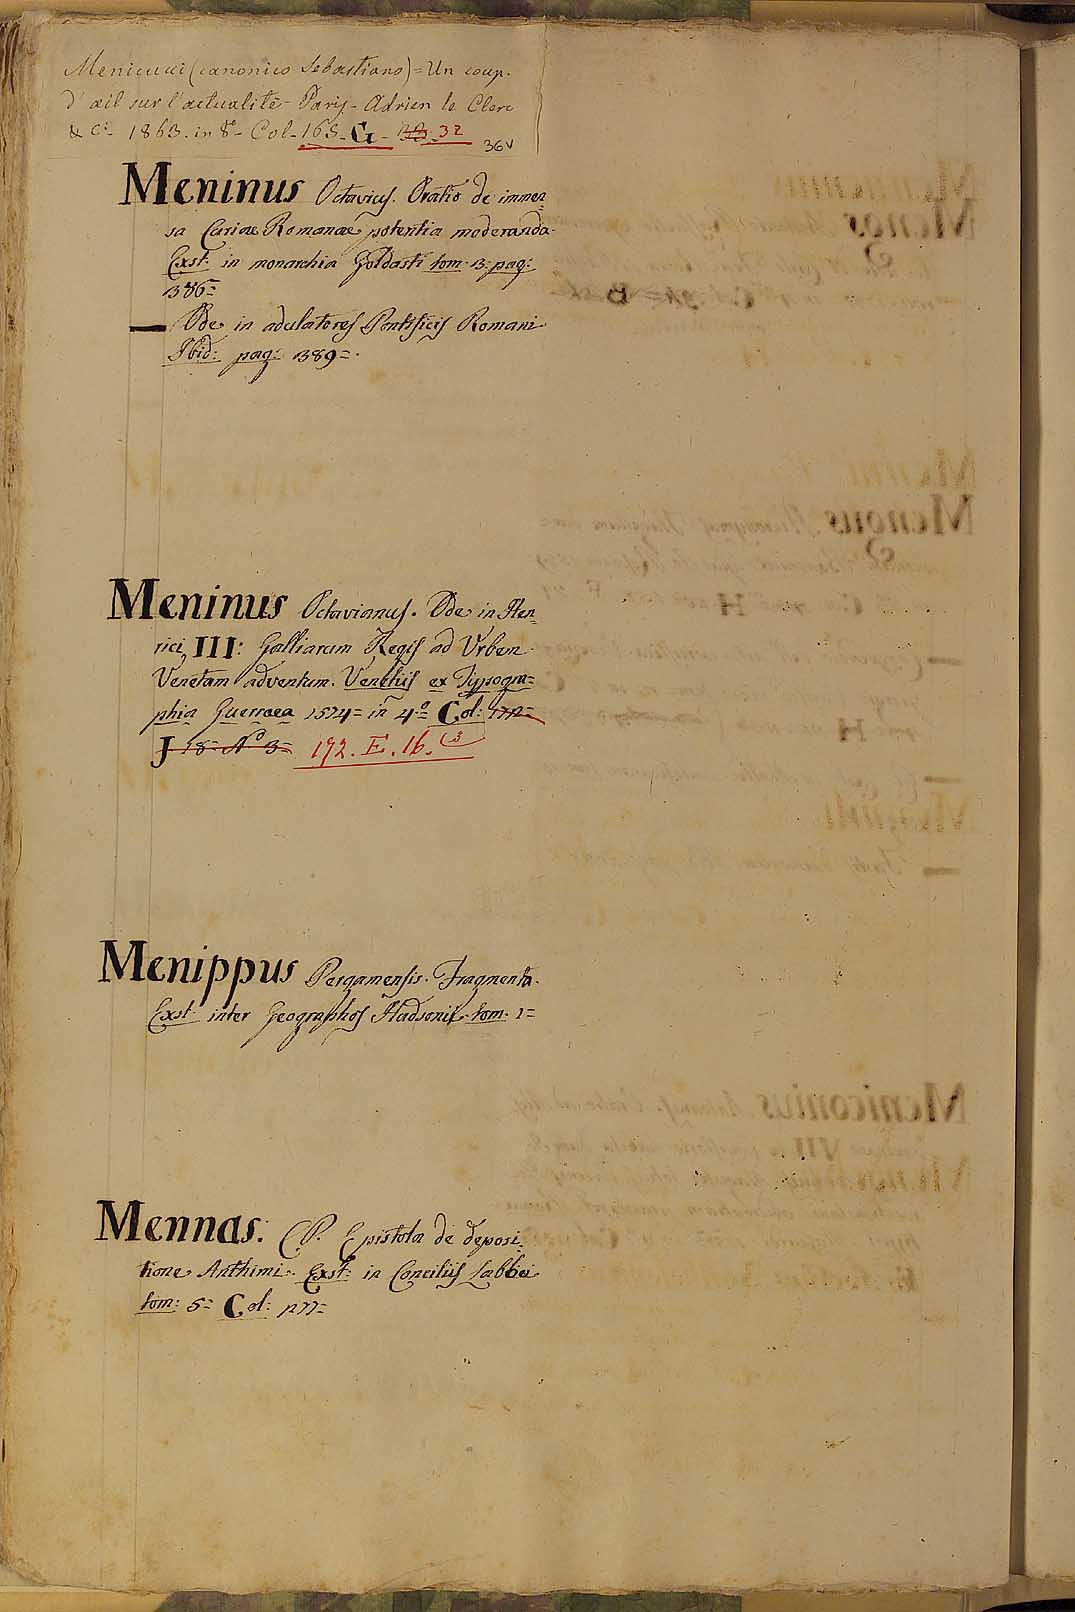 Menicucci (canonico Sebastiano) = Un coup.
d'œil sur l'actualité - Paris - Adrien le Clere
& Ci. 1863. in 8° - Col - 168 - G - 33. 32
36v
Meninus Octavius. Oratio de immen=
sa Curiae Romanae potentia moderanda.
Exst: in monarchia Goldasti tom. 3. pag:
1386=
— Ode in adulatores Pontificis Romani
Ibid: pag: 1389=.
Meninus Octavianus. Ode in Hen=
rici III: Galliarum Regis ad Urbem
Venetam adventum. Venetiis ex Typogra=
phia Guerraea 1574= in 4.° Col: 172=
J 18= N° 3= 172. E. 16. (3
Menippus Pergamensis. Fragmenta.
Exst. inter Geographos Hudsonis tom. 1=
Mennas. C.P. Epistola de deposi=
tione Anthimi. Exst: in Conciliis Labbei
tom: 5= Col: 1277=